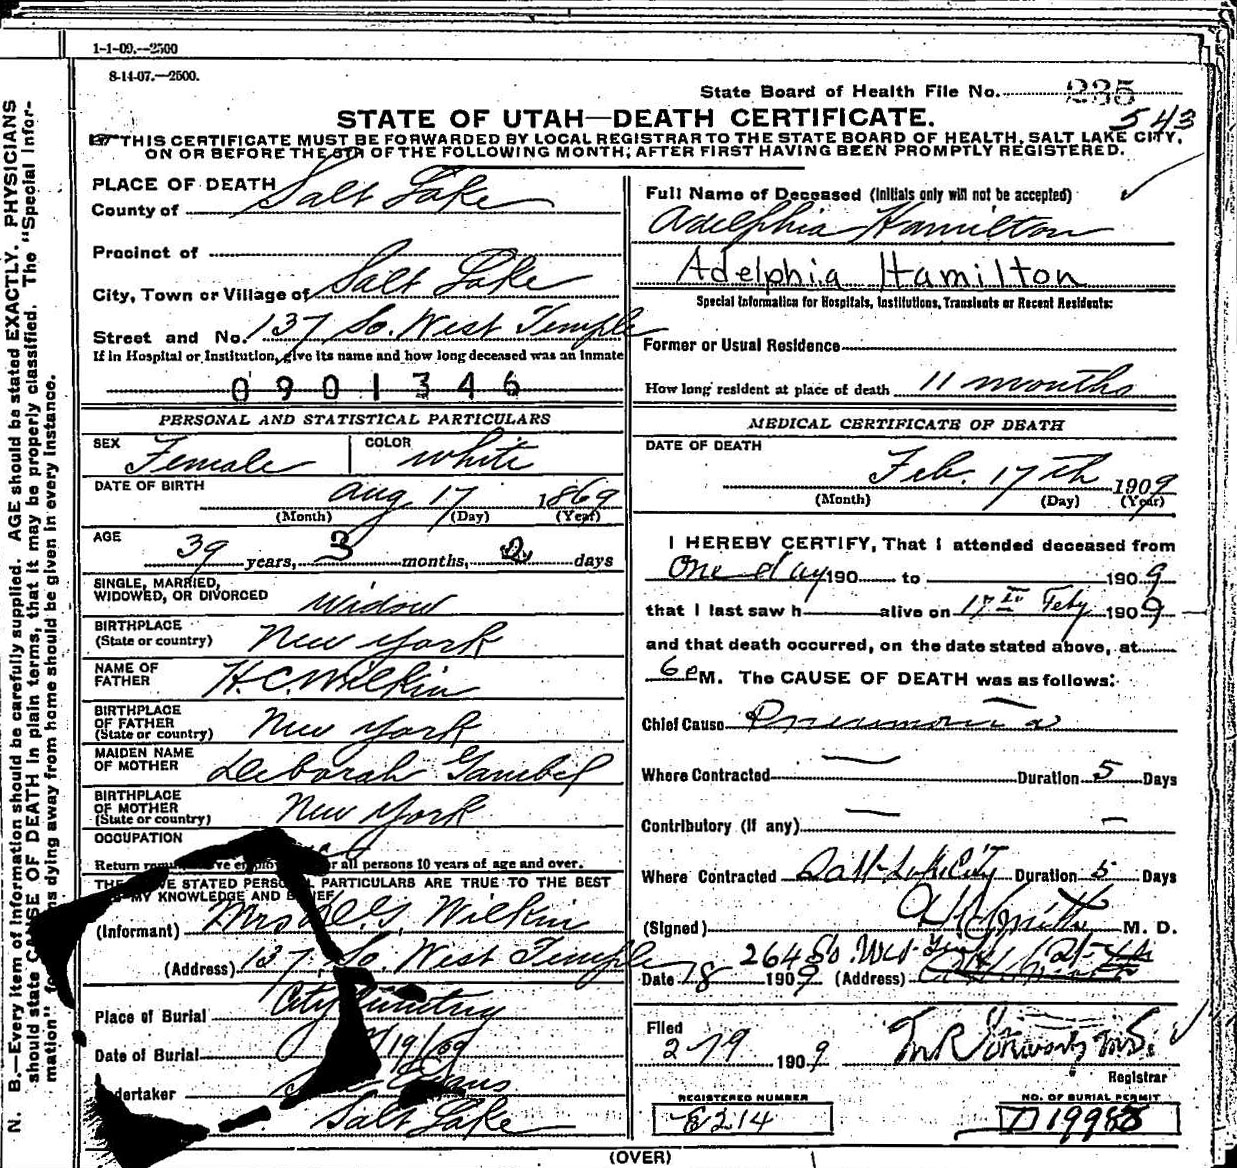 1-1-09.—2500
8-14-07.—2500.
State Board of Health File No. 235
543
STATE OF UTAH—DEATH CERTIFICATE.
THIS CERTIFICATE MUST BE FORWARDED BY LOCAL REGISTRAR TO THE STATE BOARD OF HEALTH, SALT LAKE CITY,
ON OR BEFORE THE 5TH OF THE FOLLOWING MONTH; AFTER FIRST HAVING BEEN PROMPTLY REGISTERED.
PLACE OF DEATH
County of Salt Lake
Precinct of
City, Town or Village of Salt Lake
Street and No. 137 So. West Temple
If in Hospital or Institution, give its name and how long deceased was an inmate
0901346
Full Name of Deceased (Initials only will not be accepted)
Adelphia Hamilton
Adelphia Hamilton
Special Information for Hospitals, Institutions, Transients or Recent Residents:
Former or Usual Residence
How long resident at place of death 11 months
PERSONAL AND STATISTICAL PARTICULARS
SEX Female COLOR White
DATE OF BIRTH Aug 17 1869
(Month) (Day) (Year)
AGE 39 years, 3 months, days
SINGLE, MARRIED,
WIDOWED, OR DIVORCED Widow
BIRTHPLACE
(State or country) New York
NAME OF
FATHER H.C. Wilkin
BIRTHPLACE
OF FATHER
(State or country) New York
MAIDEN NAME
OF MOTHER Deborah
BIRTHPLACE
OF MOTHER
(State or country) New York
OCCUPATION
Return for all persons 10 years of age and over.
STATED PERSONAL PARTICULARS ARE TRUE TO THE BEST
MY KNOWLEDGE AND BELIEF
(Informant) Mrs Wilkin
(Address) 137 So. West Temple
Place of Burial City
Date of Burial 19/09
Undertaker Evans
Salt Lake
MEDICAL CERTIFICATE OF DEATH
DATE OF DEATH
Feb. 17th 1909
(Month) (Day) (Year)
I HEREBY CERTIFY, That I attended deceased from
One day 190 to 1909
that I last saw h alive on 17th Feby 1909
and that death occurred, on the date stated above, at
6 P M. The CAUSE OF DEATH was as follows:
Chief Cause Pneumonia
Where Contracted — Duration 5 Days
Contributory (if any) — —
Where Contracted Salt Lk City Duration 5 Days
(Signed) Smith M. D.
264 So.
Date 18 1909 (Address)
Filed
2-19 1909
Registrar
REGISTERED NUMBER
E214
NO. OF BURIAL PERMIT
(OVER)
N. B.—Every item of information should be carefully supplied. AGE should be stated EXACTLY. PHYSICIANS
should state CAUSE OF DEATH in plain terms, that it may be properly classified. The "Special Infor-
mation" dying away from home should be given in every instance.